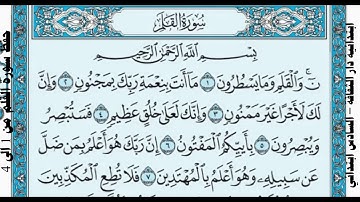 سُورَةُ القَلَمِ
بِسْمِ ٱللَّهِ ٱلرَّحْمَٰنِ ٱلرَّحِيمِ
نٓ ۚ وَٱلْقَلَمِ وَمَا يَسْطُرُونَ ١ مَآ أَنتَ بِنِعْمَةِ رَبِّكَ بِمَجْنُونٍ ٢ وَإِنَّ
لَكَ لَأَجْرًا غَيْرَ مَمْنُونٍ ٣ وَإِنَّكَ لَعَلَىٰ خُلُقٍ عَظِيمٍ ٤ فَسَتُبْصِرُ
وَيُبْصِرُونَ ٥ بِأَييِّكُمُ ٱلْمَفْتُونُ ٦ إِنَّ رَبَّكَ هُوَ أَعْلَمُ بِمَن ضَلَّ
عَن سَبِيلِهِۦ وَهُوَ أَعْلَمُ بِٱلْمُهْتَدِينَ ٧ فَلَا تُطِعِ ٱلْمُكَذِّبِينَ
حفظ سورة القلم من 1 الى 4
السادس ابتدائي